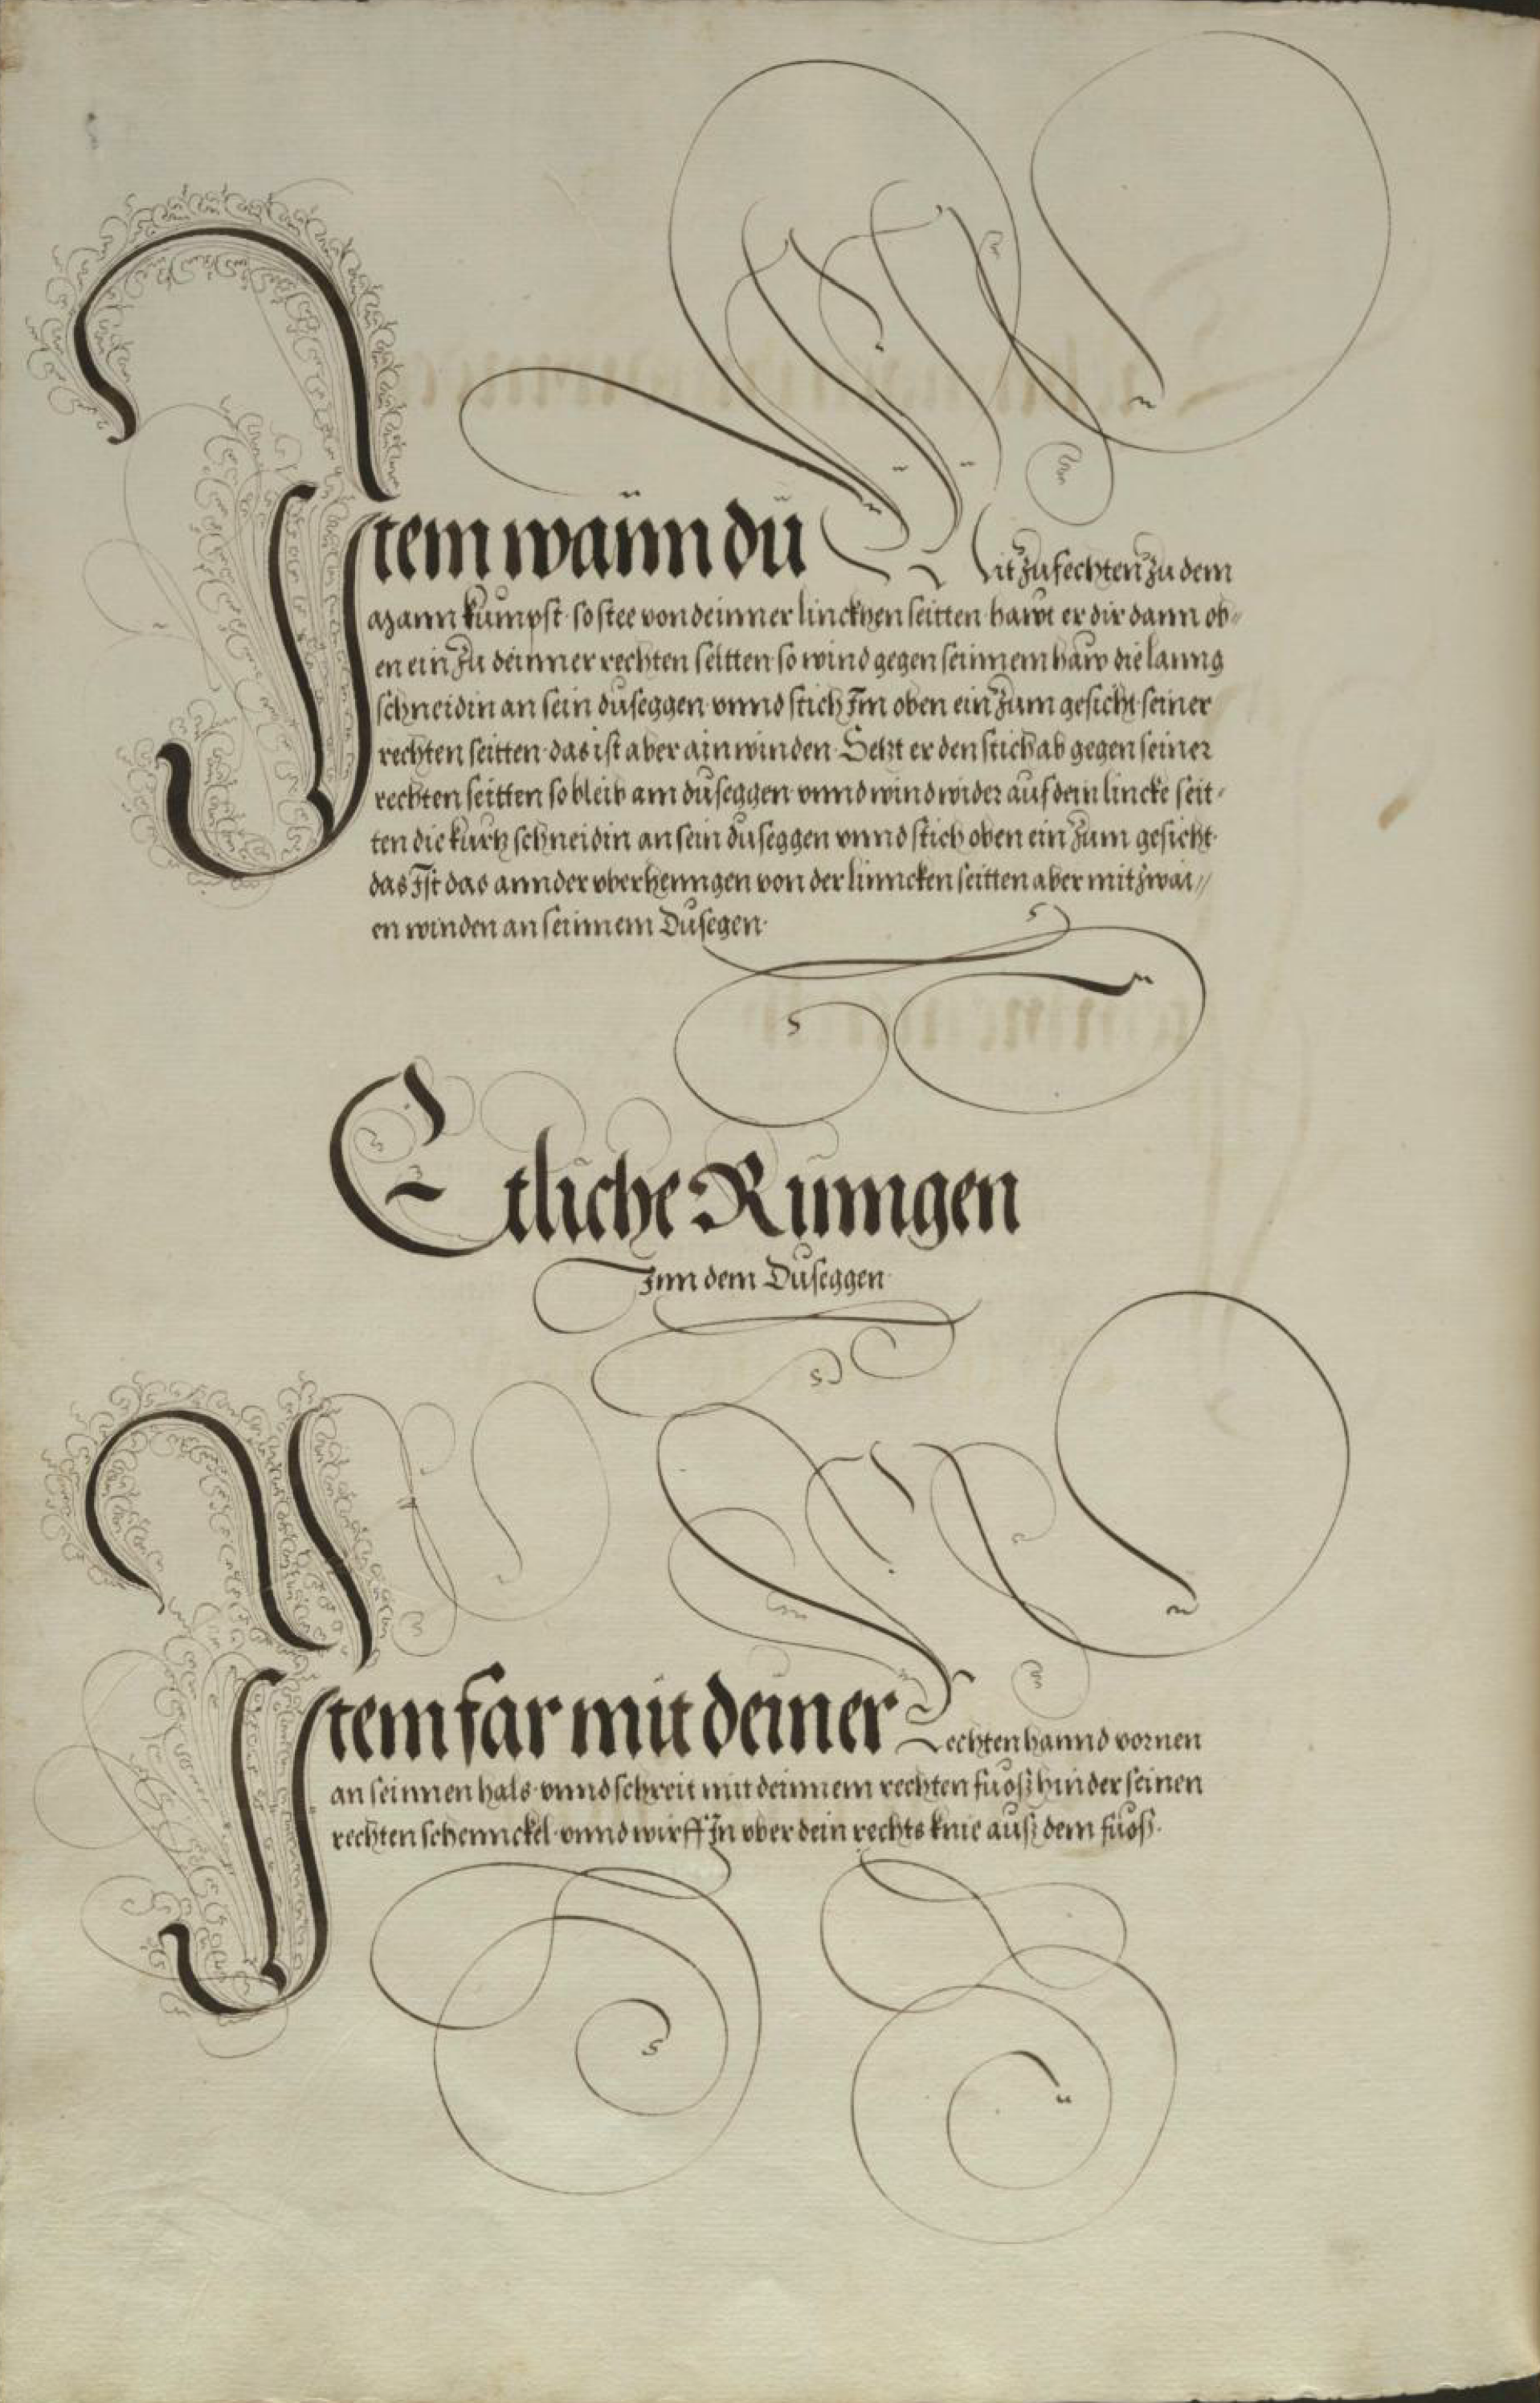 Item wann du Mit zufechten zu dem
Mann kumpst · so stee von deinner linckhen seitten · hawt er dir dann ob-
en ein zu deinner rechten seitten · so wind gegen seinnem haw die lanng
schneidin an sein duseggen · vnnd stich Im oben ein zum gesicht · seiner
rechten seitten · das ist aber ain winden · Setzt er den stich ab gegen seiner
rechten seitten so bleib am duseggen · vnnd wind wider auf dein lincke seit-
ten die kurtz schneidin an sein duseggen vnnd stich oben ein zum gesicht ·
das Ist das annder vberhenngen von der linncken seitten aber mit zwai-
en winden an seinnem Dusegen ·
Etliche Ringen
Inn dem Duseggen
Item far mit deiner Rechten hannd vornen
an seinnen hals · vnnd schreit mit deinnem rechten fuosz hinder seinen
rechten schennckel · vnnd wirff In vber dein rechts knie ausz dem fuosz ·